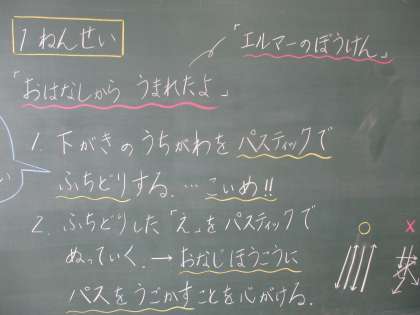 1ねんせい
「エルマーのぼうけん」
「おはなしから うまれたよ」
1. 下がきのうちがわをパスティックで
ふちどりする.…こいめ!!
2. ふちどりした「え」をパスティックで
ぬっていく.→おなじほうこうに
パスをうごかすことを心がける.
○ ×
い